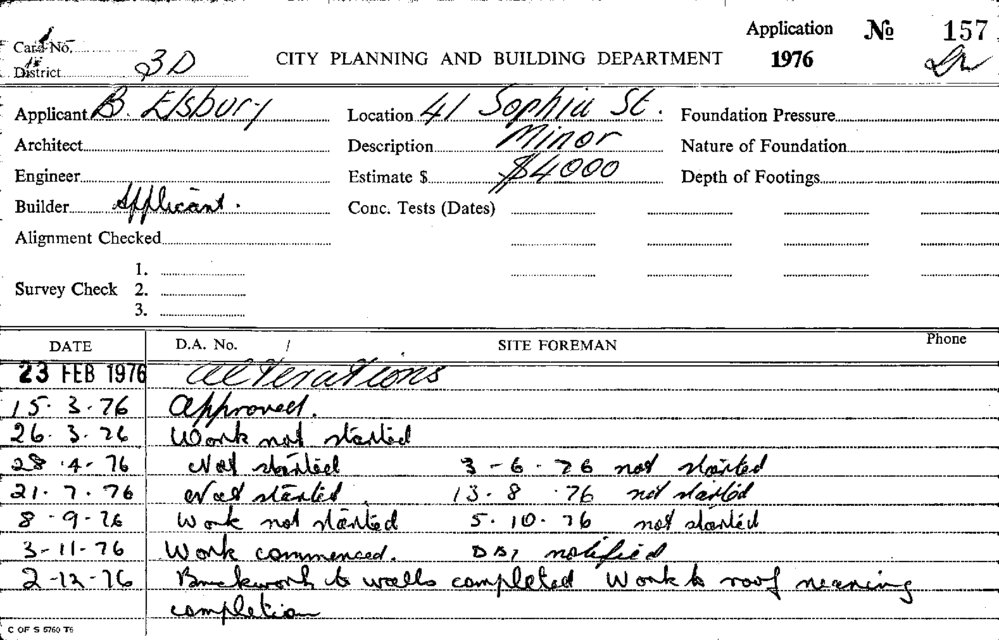 Application No 157
Card No.
District 3D CITY PLANNING AND BUILDING DEPARTMENT 1976
Applicant B. Elsbury Location 41 Sophia St. Foundation Pressure
Architect Description Minor Nature of Foundation
Engineer Estimate $ $4000 Depth of Footings
Builder Applicant. Conc. Tests (Dates)
Alignment Checked
1.
Survey Check 2.
3.
DATE D.A. No. / SITE FOREMAN Phone
23 FEB 1976 alterations
15. 3. 76 Approved.
26. 3. 76 Work not started
28. 4- 76 Not started 3-6. 76 not started
21. 7. 76 Not started. 13. 8. 76 not started
8-9-76 Work not started 5. 10. 76 not started
3-11-76 Work commenced. notified
2-12-76 Brickwork to walls completed Work to roof nearing
completion
C OF S 5760 T6